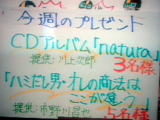 今週のプレゼント
CDアルバム「natura」
提供:川上次郎
3名様
「ハミだし男・オレの商法は
ここが違う」
提供:市野川昌也
5名様